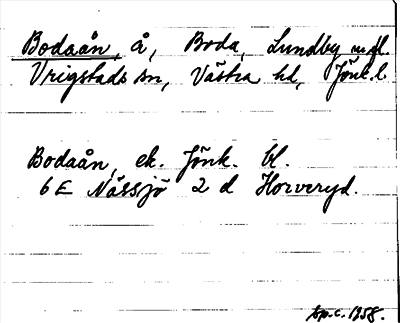 Bodaån, å, Boda, Lundby m.fl.
Vrigstads sn, Västra hd, Jönk.l.
Bodaån, ek. Jönk. bl.
6E Nässjö 2 d Horveryd.
1958.